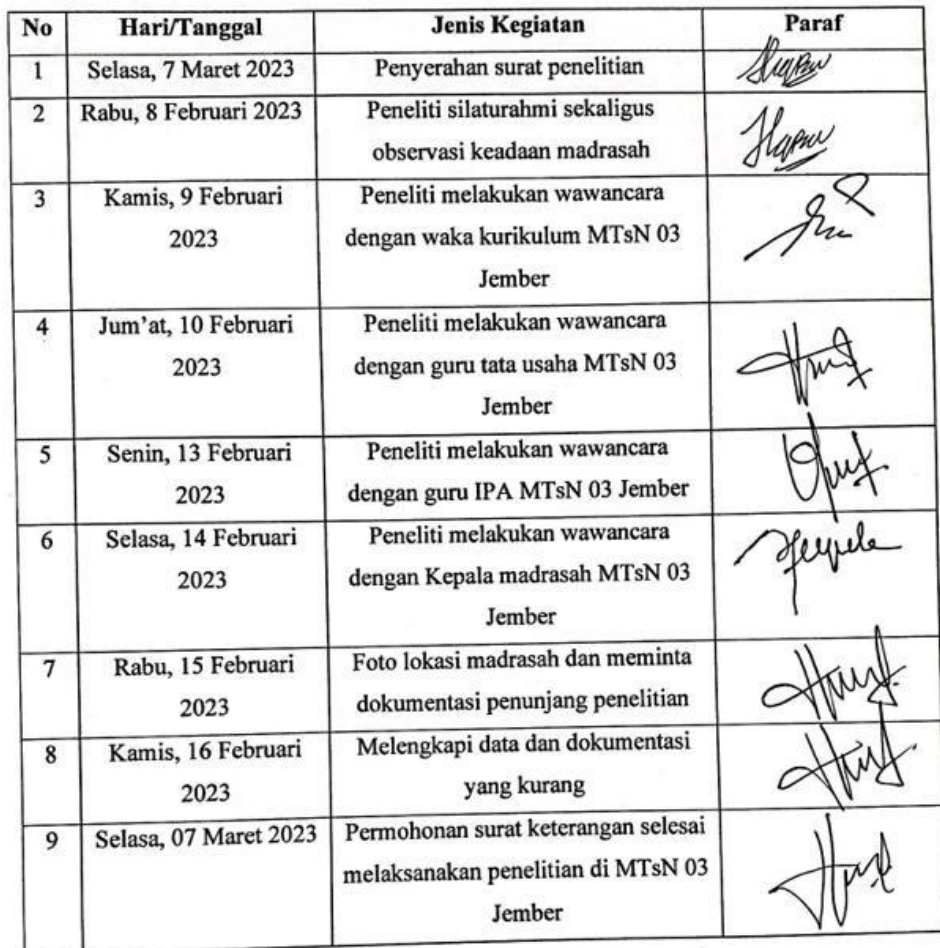 No Hari/Tanggal Jenis Kegiatan Paraf
1 Selasa, 7 Maret 2023 Penyerahan surat penelitian
2 Rabu, 8 Februari 2023 Peneliti silaturahmi sekaligus
observasi keadaan madrasah
3 Kamis, 9 Februari Peneliti melakukan wawancara
2023 dengan waka kurikulum MTsN 03
Jember
4 Jum’at, 10 Februari Peneliti melakukan wawancara
2023 dengan guru tata usaha MTsN 03
Jember
5 Senin, 13 Februari Peneliti melakukan wawancara
2023 dengan guru IPA MTsN 03 Jember
6 Selasa, 14 Februari Peneliti melakukan wawancara
2023 dengan Kepala madrasah MTsN 03
Jember
7 Rabu, 15 Februari Foto lokasi madrasah dan meminta
2023 dokumentasi penunjang penelitian
8 Kamis, 16 Februari Melengkapi data dan dokumentasi
2023 yang kurang
9 Selasa, 07 Maret 2023 Permohonan surat keterangan selesai
melaksanakan penelitian di MTsN 03
Jember